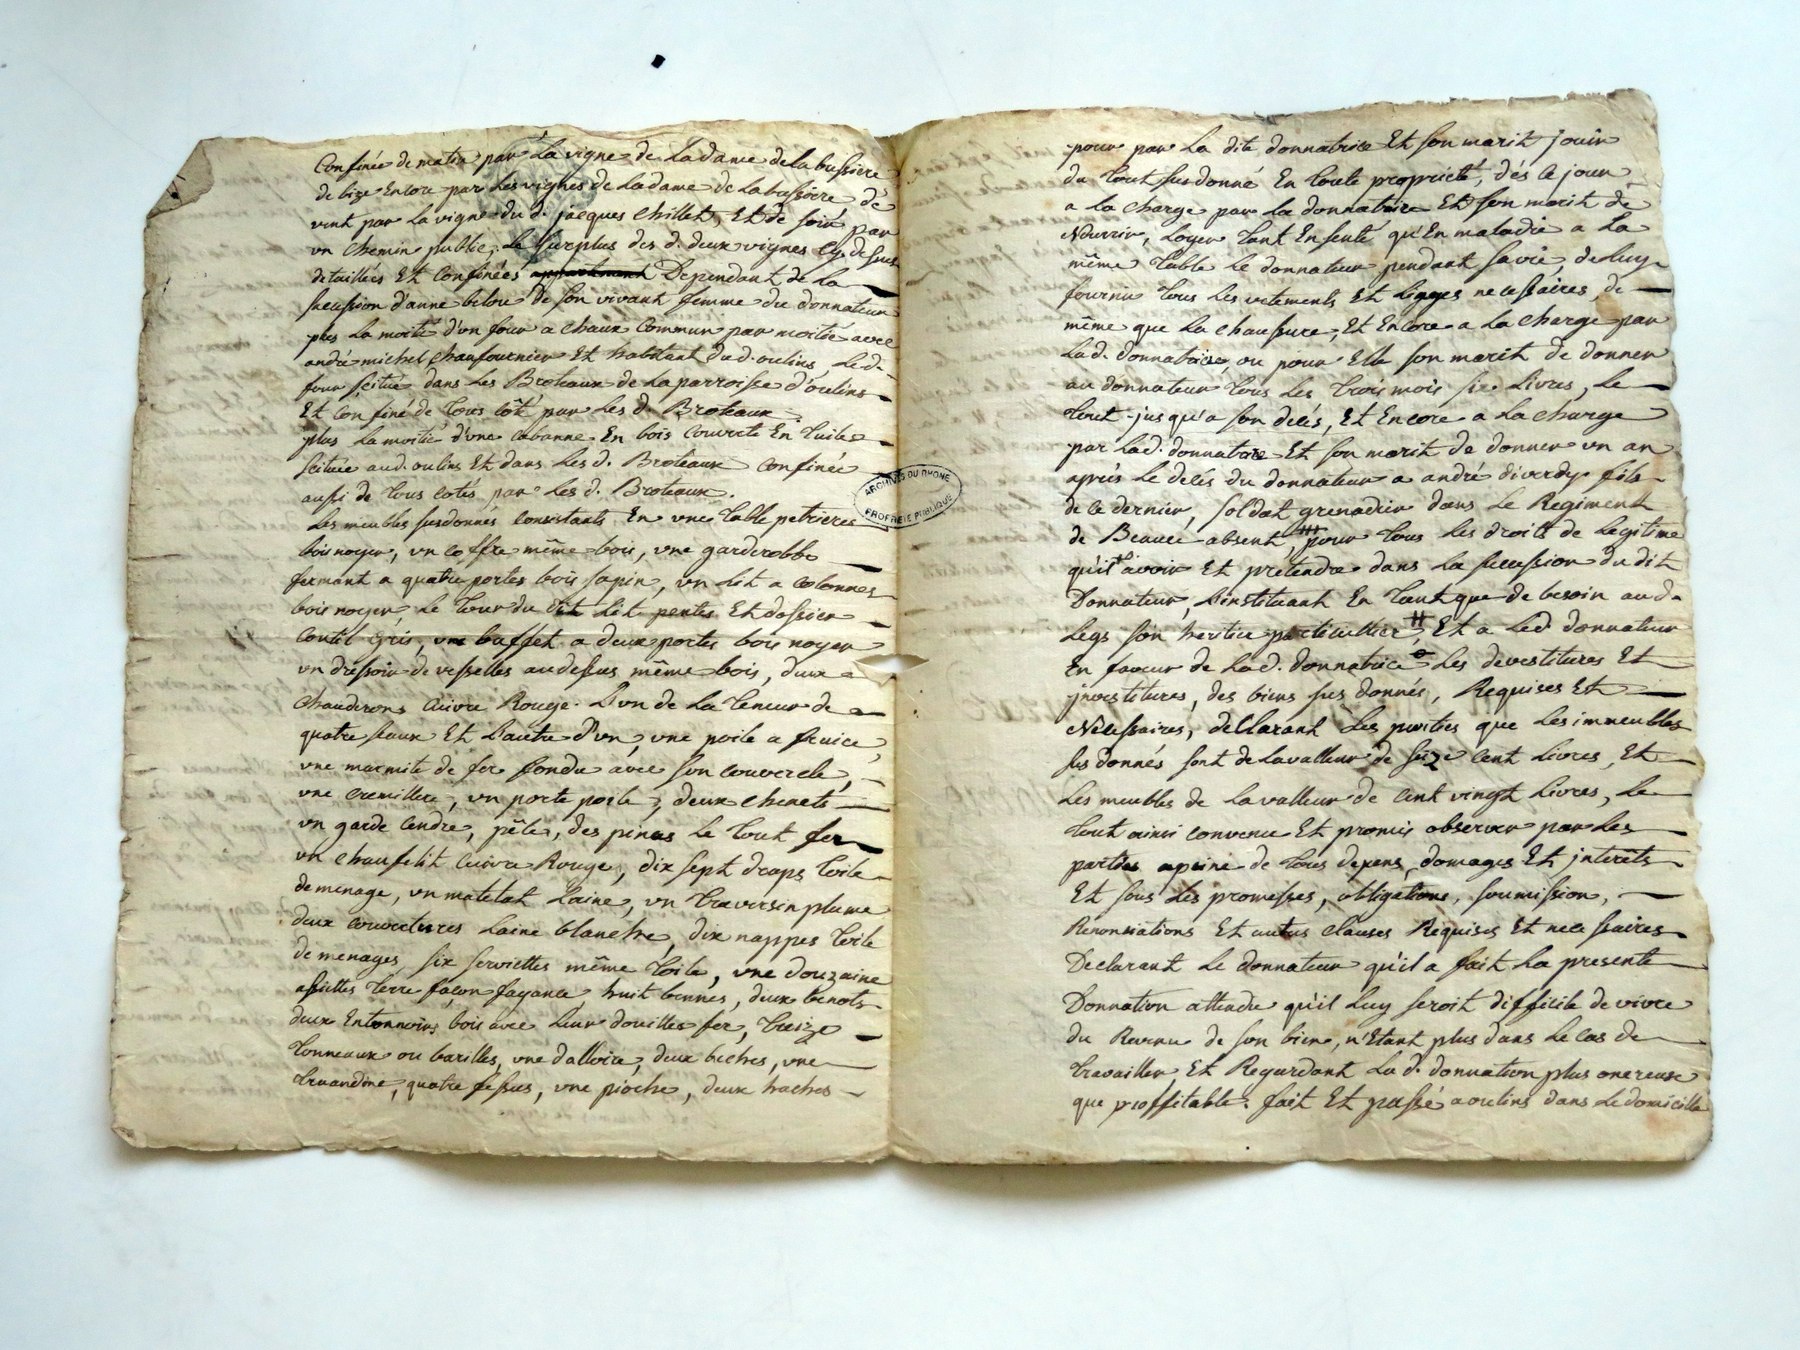 Confinée de matin par la vigne de la dame de la bussiere
de bize Encore par les vignes de la dame de la bussiere de
vent par la vigne du d. jacques chillet, Et de soir par
un chemin public, le surplus des d. deux vignes Cy dessus
detaillées Et confinées appartenant Dependant de la
sucession d'anne belou de son vivant femme du donnateur
plus la moitié d'un four a chaux commun par moitié avec
andré michel chaufournier Et habitant du d. oulins, Le d.
four scitué dans les Broteaux de la parroisse d'oulins
Et confiné de tous coté par les d. Broteaux.
plus la moitié d'une cabanne En bois couverte En tuiles
scituée au d. oulins Et dans les d. Broteaux confinée
aussi de tous cotés par les d. Broteaux.
Les meubles susdonnés consistants En une table petriere
bois noyer, un coffre même bois, une garderobbe
fermant a quatre portes bois sapin, un Lit a colonnes
bois noyer le tour du dit Lit pentes Et dossier
coutil gris, un buffet a deux portes bois noyer
un dressoir de vesselles au dessus même bois, deux
chauderons cuivre Rouge. L'un de la teneur de
quatre seaux Et L'autre d'un, une poile a
une marmite de fer fondu avec son couvercle,
une cremillere, un porte poile, deux chenets
un garde cendre, pêle, des pinces le tout fer
un chaufelit cuivre Rouge, dix sept draps toile
de menage, un matelat Laine, un traversin plume
deux couvertures Laine blanche, dix nappes toile
de menages six serviettes même toile, une douzaine
assiettes terre façon fayance, huit bennes, deux benots
deux Entonnoirs bois avec leur douilles fer, treize
tonneaux ou barilles, une dalloire, deux bêches, une
truandine, quatre fessus, une pioche, deux haches
ARCHIVES DU RHONE
PROPRIETE PUBLIQUE
pour par La dite donnatrice Et son marit jouir
du tout susdonné En toute proprieté, dés ce jour
a la charge par la donnatrice Et son marit de
Nourrir, Loger tant En senté qu'En maladie a La
même table Le donnateur pendant sa vie, de luy
fournir tous les vetements Et Legges necessaires, de
même que La chaussure, Et Encore a La charge par
La d. donnatrice, ou pour Elle son marit de donner
au donnateur tous les trois mois six Livres, Le
tout jusqu'a son décés, Et Encore a La charge
par La d. donnatrice Et son marit de donner un an
aprés Le décés du donnateur a andré diverdy fils
de ce dernier, soldat grenadier dans Le Regiment
de Beauce absent pour tous les droits de Legitime
qu'il avoir Et pretendre dans la sucession du dit
Donnateur, L'instituant En tant que de besoin au d.
Legs son heritier particullier, Et a Led. donnateur
En faveur de La d. donnatrice Les devestitures Et
jnvestitures, des biens sus donnés, Requises Et
Nécessaires, declarant Les parties que Les immeubles
sus donnés sont de la valleur de seize cent Livres, Et
Les meubles de la valleur de cent vingt Livres, Le
tout ainsi convenu Et promis observer par Les
parties apeine de tous depens, domages Et interêts
Et sous Les promesses, obligations, soumission,
Renonsiations Et autres clauses Requises Et necessaires
Declarant Le donnateur qu'il a fait La presente
Donnation attendu qu'il Luy seroit difficile de vivre
du Revenu de son bien, n'Etant plus dans Le cas de
travailler Et Regardant La d. donnation plus onereuse
que proffitable. fait Et passé a oulins dans Le domicille